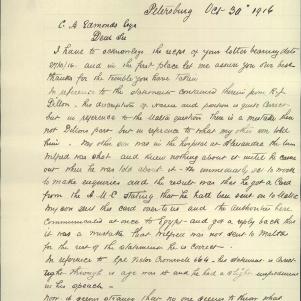 Petersburg Oct 30th 1916
C. A. Edmonds Esqr
Dear Sir
I have to acknowledge the receipt of your letter bearing date
27/10/16. and in the first place let me assure you our best
thanks for the trouble you have taken
In reference to the statement contained therein from R.J.
Dillon. His description of name and position is quite correct
but in reference to the Malta question there is a mistake
on Dillons part but in reference to what my other son told
him. My other son was in the hospital at Alexandria the time
Wilfred was shot and knew nothing about it until he came
out when he was told about it. He immediately set to work
to make enquiries and the result was that he got a Card
from the A.M.C stating that he had been sent on to Malta
My son sent this card over to us and the authorities here
Communicated at once to Egypt and got a reply back that
it was a mistake that Wilfred was not sent to Malta
for the rest of the statement he is correct.
In reference to Cpl Victor Cromwell 664. his statement is
right through is age was it and he had a slight impediment
in his speech
Now it seems strange that no one seems to know what